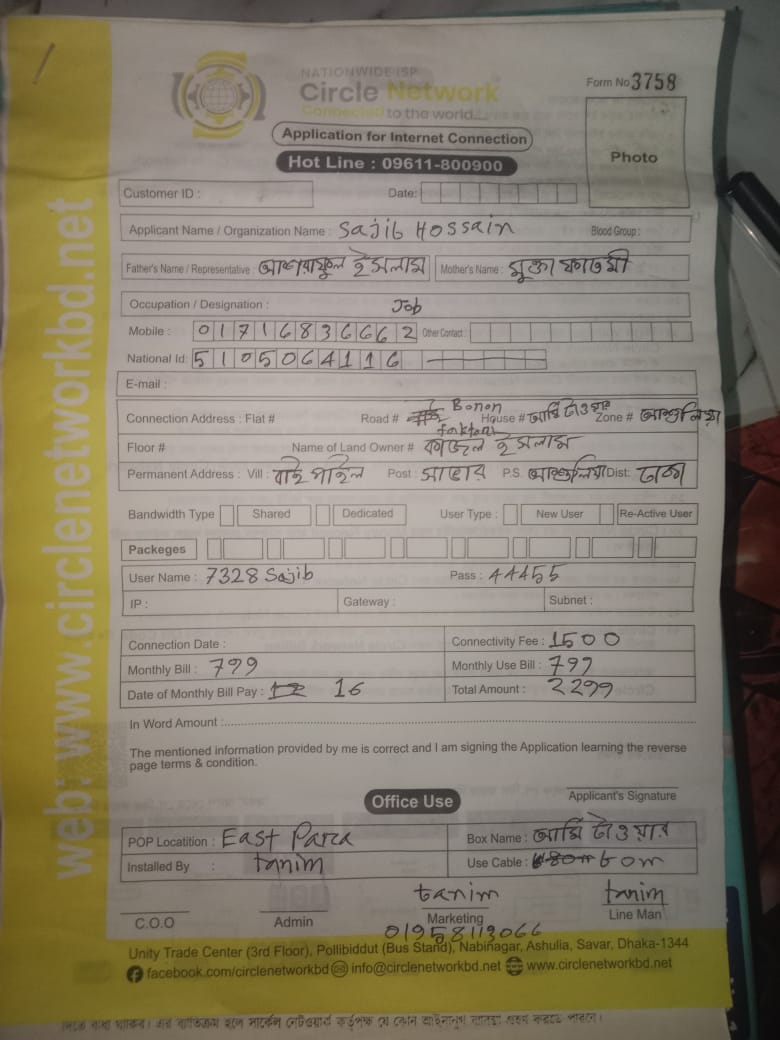 NATIONWIDE ISP
Circle Network
Connected to the world
Form No 3758
Photo
Application for Internet Connection
Hot Line : 09611-800900
Customer ID : Date:
Applicant Name / Organization Name : Sajib Hossain Blood Group :
Father's Name / Representative : আশরাফুল ইসলাম Mother's Name : মুক্তা ফাতেমী
Occupation / Designation : Job
Mobile : 01716836662 Other Contact :
National Id: 5105064116
E-mail :
Connection Address : Flat # Road # Bonon faktori House # আর্মি টাওয়ার Zone # আশুলিয়া
Floor # Name of Land Owner # কাজল ইসলাম
Permanent Address : Vill : বাইপাইল Post : সাভার P.S. আশুলিয়া Dist: ঢাকা
Bandwidth Type Shared Dedicated User Type : New User Re-Active User
Packeges
User Name : 7328 Sajib Pass : 44455
IP : Gateway : Subnet :
Connection Date : Connectivity Fee : 1500
Monthly Bill : 799 Monthly Use Bill : 799
Date of Monthly Bill Pay : 16 Total Amount : 2299
In Word Amount :
The mentioned information provided by me is correct and I am signing the Application learning the reverse
page terms & condition.
Applicant's Signature
Office Use
POP Locatition : East Para Box Name : আর্মি টাওয়ার
Installed By : tanim Use Cable : 60m
tanim tanim
C.O.O Admin Marketing Line Man
01958113066
Unity Trade Center (3rd Floor), Pollibiddut (Bus Stand), Nabinagar, Ashulia, Savar, Dhaka-1344
facebook.com/circlenetworkbd info@circlenetworkbd.net www.circlenetworkbd.net
web: www.circlenetworkbd.net